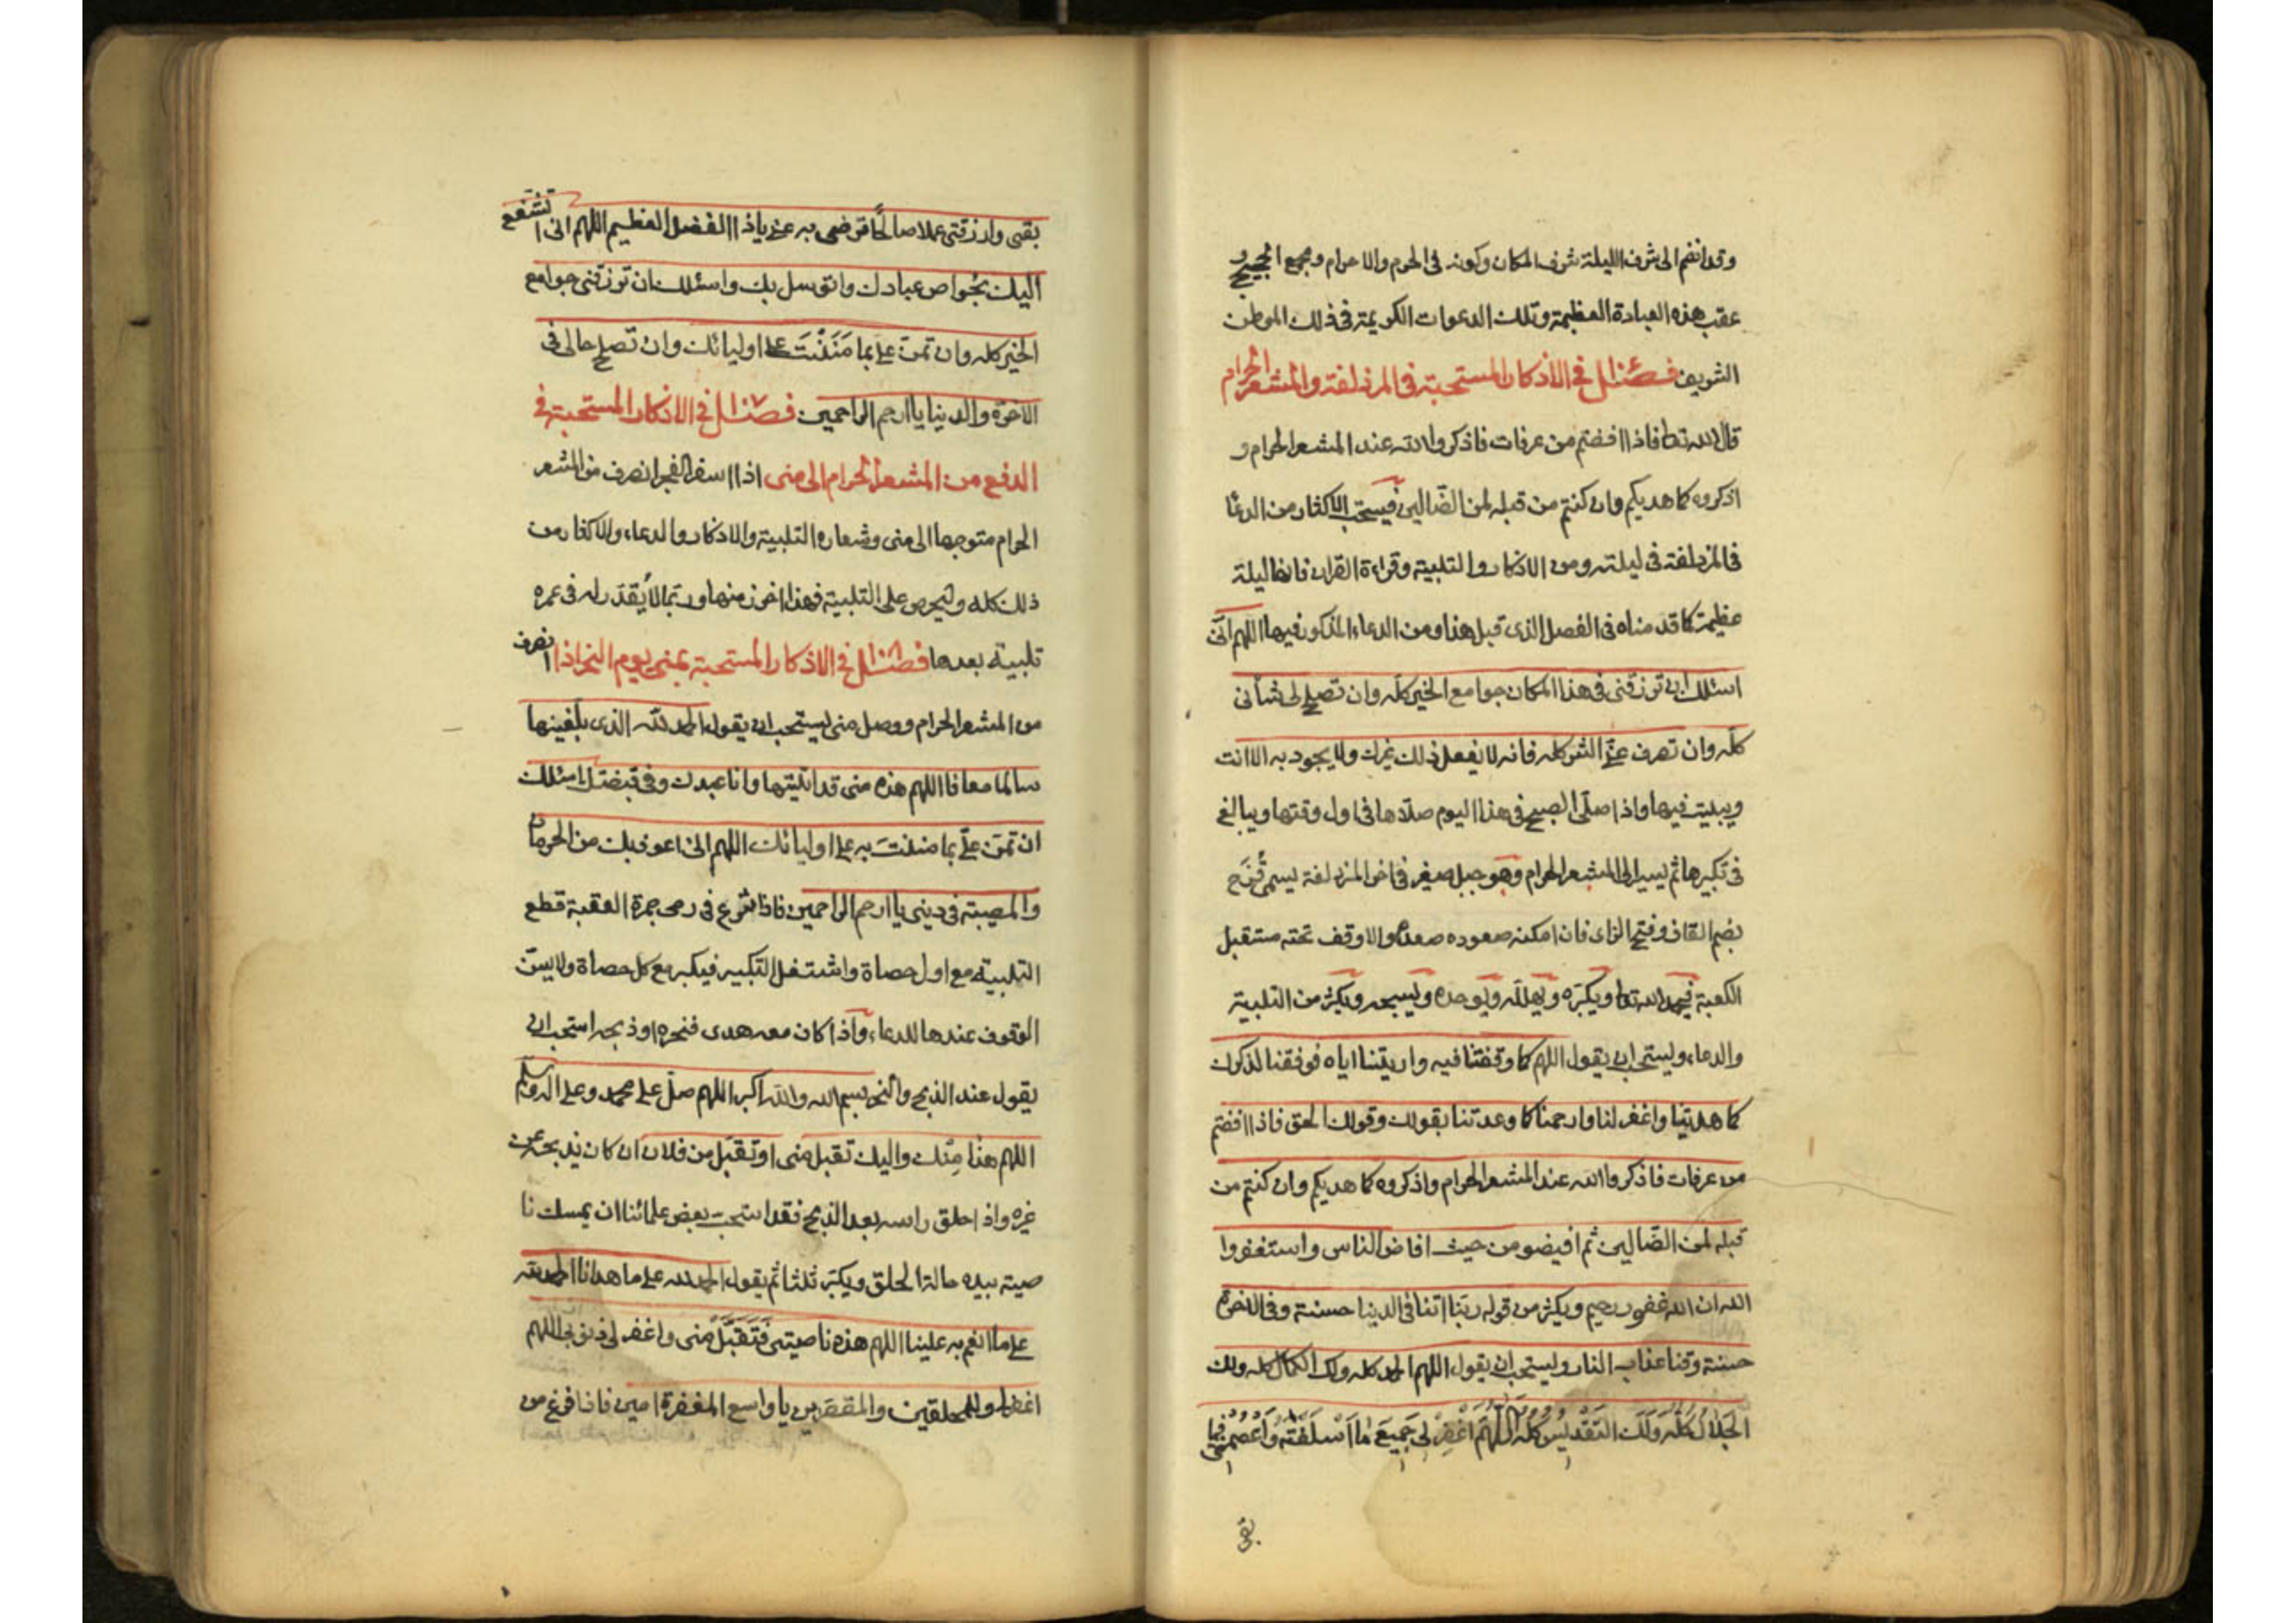 وقد انضم الى شرف الليلة شرف المكان وكونه فى الحرم والاحرام ومجمع الحجيج و
عقب هذه العبادة العظيمة وتلك الدعوات الكريمة فى ذلك الموطن
الشريف فصل فى الاذكار المستحبة فى المزدلفة والمشعر الحرام
قال الله تعا فاذا افضتم من عرفات فاذكروا الله عند المشعر الحرام و
اذكروه كما هديكم وان كنتم من قبله لمن الضالين فيستحب الاكثار من الدعا
فى المزدلفة فى ليلته ومن الاذكار والتلبية وقراءة القران فانها ليلة
عظيمة كما قدمناه فى الفصل الذى قبل هذا ومن الدعاء المذكور فيها اللهم انى
اسئلك ان ترزقنى فى هذا المكان جوامع الخير كله وان تصلح لى شأنى
كله وان تصرف عنى الشر كله فانه لا يفعل ذلك غيرك ولا يجود به الا انت
ويبيت فيها واذا صلى الصبح فى هذا اليوم صلاها فى اول وقتها ويبالغ
فى تكبيرها ثم يسير الى المشعر الحرام وهو جبل صغير فى اخر المزدلفة يسمى قُزَح
بضم القاف وفتح الزاى فان امكنه صعوده صعده والا وقف تحته مستقبل
الكعبة فيحمد الله تعا ويكبره ويهلله ويوحده ويسبحه ويكثر من التلبية
والدعاء ويستحب ان يقول اللهم كما وقفتنا فيه واريتنا اياه فوفقنا لذكرك
كما هديتنا واغفر لنا وارحمنا كما وعدتنا بقولك وقولك الحق فاذا افضتم
من عرفات فاذكروا الله عند المشعر الحرام واذكروه كما هديكم وان كنتم من
قبله لمن الضالين ثم افيضو من حيث افاض الناس واستغفروا
الله ان الله غفور رحيم ويكثر من قوله ربنا اتنا فى الدينا حسنة وفى الاخرة
حسنة وقنا عذاب النار ويستحب ان يقول اللهم لك الحمد كله ولك الكمال كله ولك
الجَلَالُ كُلُّه وَلَكَ التَقْدِيسُ كُلُّه اللّٰهُمَّ اغْفِرْ لِى جَمِيعَ مَا اَسْلَفْتُه وَاعْصِمْنِى فيما
بقى
بقى وارزقنى عملا صالحًا ترضى به عنى ياذا الفضل العظيم اللهم انى اتشفع
اليك بخواص عبادك واتوسل بك واسئلك ان ترزقنى جوامع
الخير كله وان تمن على بما مَنَنْتَ على اوليائك وان تصلح حالى فى
الاخرة والدينا يا ارحم الراحمين فصل فى الاذكار المستحبة فى
الدفع من المشعر الحرام الى منى اذا اسفر الفجر انصرف من المشعر
الحرام متوجها الى منى وشعاره التلبية والاذكار والدعاء والاكثار من
ذلك كله وليحرص على التلبية فهذا اخر زمنها وربما لا يُقدّر له فى عمره
تلبية بعدها فصل فى الاذكار المستحبة بمنى يوم النحر اذا انصرف
من المشعر الحرام ووصل منى يستحب ان يقول الحمد لله الذى بلغينها
سالما معافا اللهم هذه منى قد اتيتها وانا عبدك وفى قبضتك اسئلك
ان تمن على بما مننتَ به على اوليائك اللهم انى اعوذ بك من الحرمان
والمصيبة فى دينى يا ارحم الراحمين فاذا شرع فى رمى جمرة العقبة قطع
التلبية مع اول حصاة واشتغل بالتكبير فيكبر مع كل حصاة ولا يسن
الوقوف عندها للدعاء واذا كان معه هدى فنحره اوذبحه استحب ان
يقول عند الذبح والنحر بسم الله والله اكبر اللهم صل على محمد وعلى اله وسلم
اللهم هذا مِنك واليك تقبل منى اوتقبل من فلان ان كان يذبحه عن
غيره واذا حلق راسه بعد الذبح فقد استحب بعض علمائنا ان يمسك نا
صيته بيده حالة الحلق ويكبر ثلثا ثم يقول الحمد لله على ما هدانا الحمد لله
على ما انعم به علينا اللهم هذه ناصيتى فَتَقَبَّلْ منى واغفر لى ذنوبى اللهم
اغفر لى وللمحلقين والمقصرين يا واسع المغفرة امين فاذا فرغ من